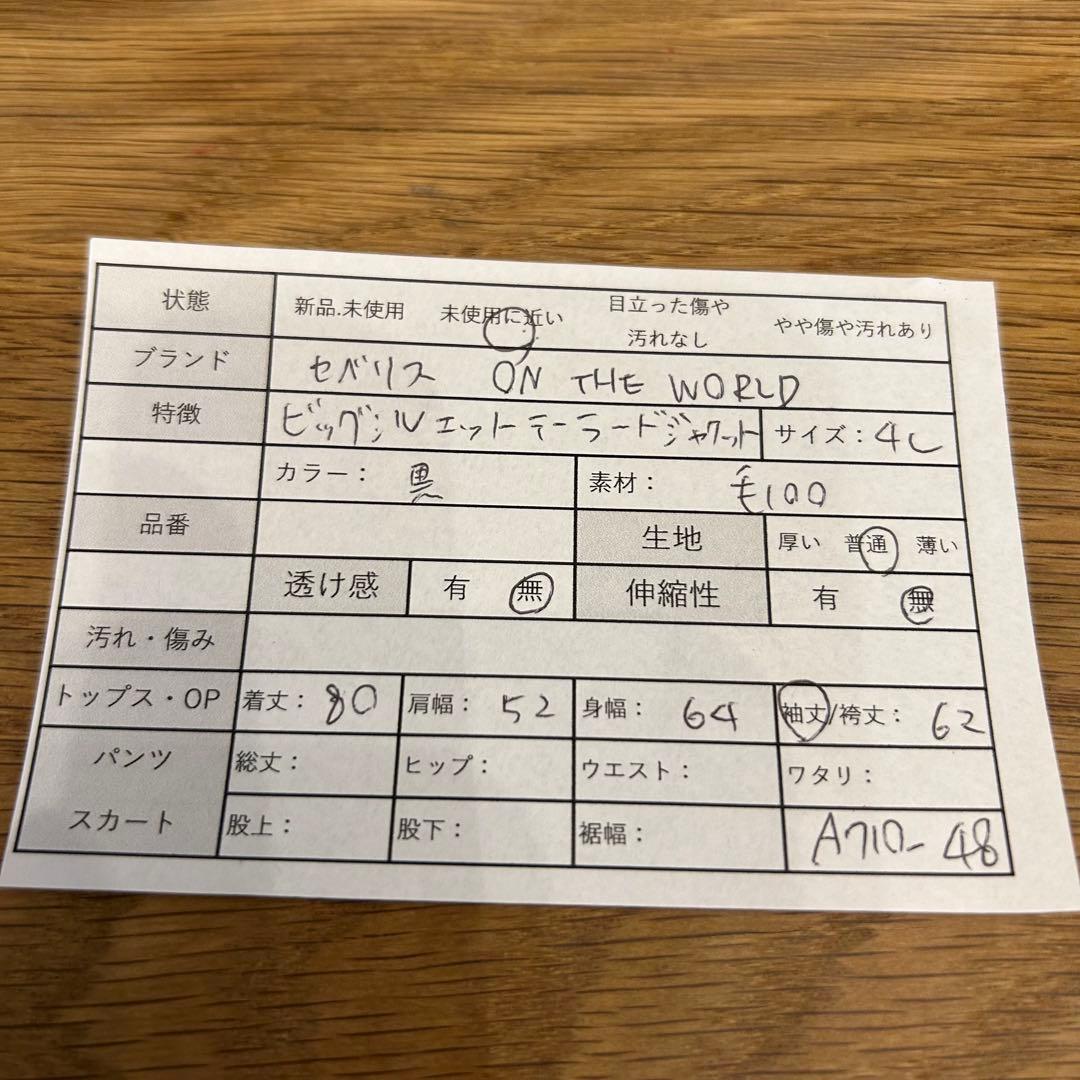 状態 新品.未使用 未使用に近い 目立った傷や汚れなし やや傷や汚れあり
ブランド セベリス ON THE WORLD
特徴 ビッグシルエットテーラードジャケット サイズ：4L
カラー： 黒 素材： 毛100
品番 生地 厚い 普通 薄い
透け感 有 無 伸縮性 有 無
汚れ・傷み
トップス・OP 着丈：80 肩幅：52 身幅：64 袖丈/袴丈：62
パンツ 総丈： ヒップ： ウエスト： ワタリ：
スカート 股上： 股下： 裾幅： A710-48